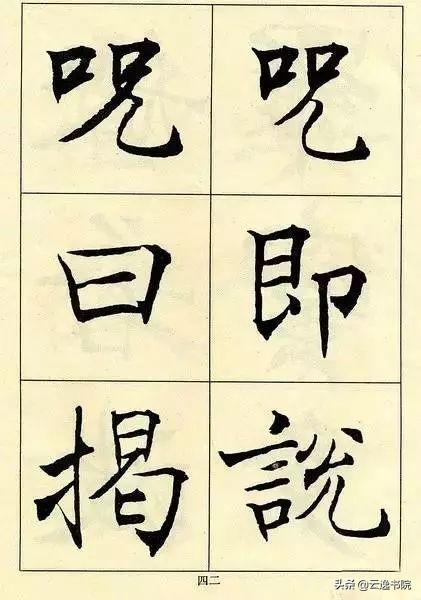 咒即說
咒曰揭
四二
头条@云逸书院